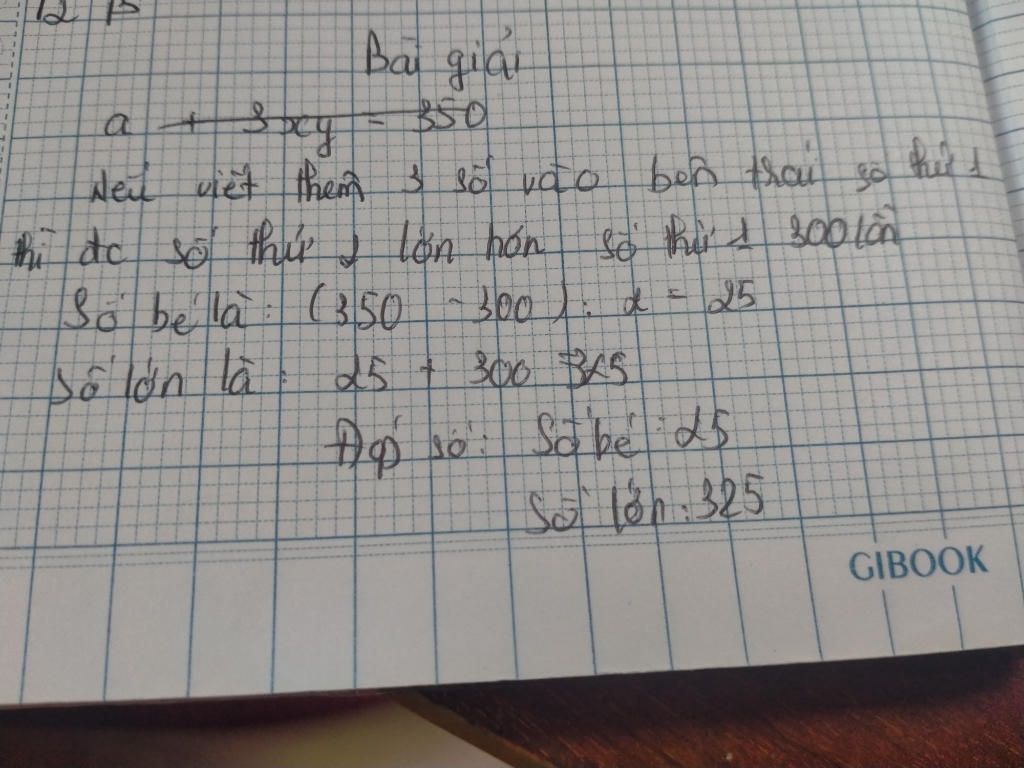 12 B
Bài giải
a + 3xy = 350
Nếu viết thêm 3 số vào bên trái số thứ 1
thì đc số thứ 2 lớn hơn số thứ 1 300 lần
Số bé là: (350 - 300) : 2 = 25
Số lớn là: 25 + 300 = 325
Đáp số: Số bé: 25
Số lớn: 325
GIBOOK